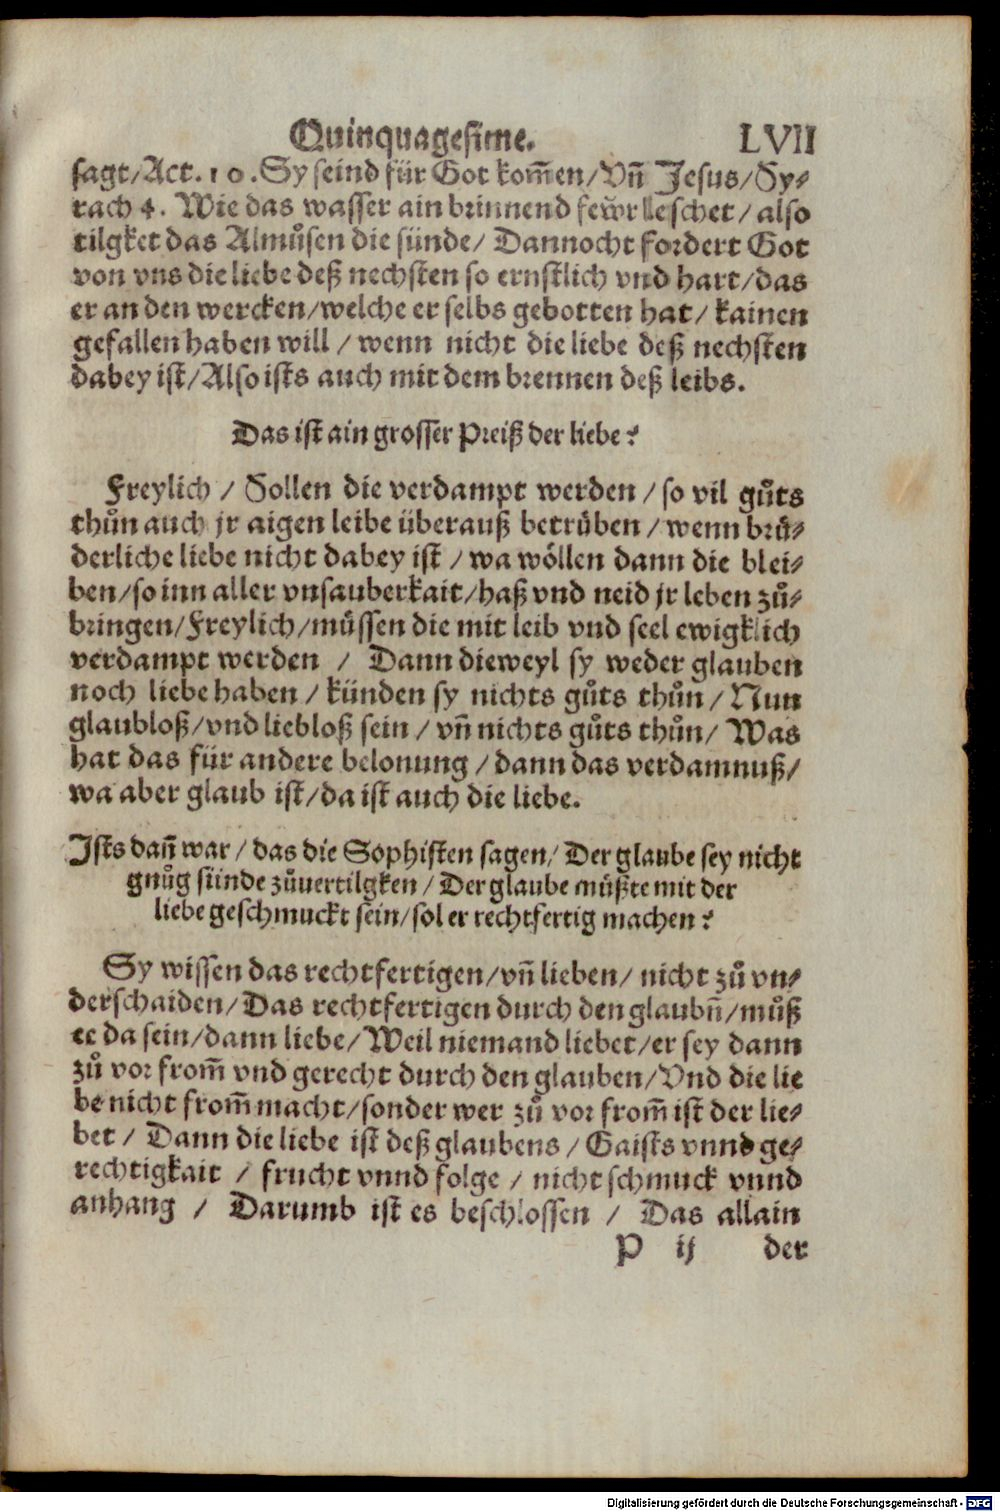 Quinquagesime. LVII
sagt/Act. 10. Sy seind für Got kom̃en/Vn̄ Jesus/Sy⸗
rach 4. Wie das wasser ain brinnend fewͤr leschet/ also
tilgket das Almůsen die sünde/ Dannocht fordert Got
von vns die liebe deß nechsten so ernstlich vnd hart/das
er an den wercken/welche er selbs gebotten hat/ kainen
gefallen haben will / wenn nicht die liebe deß nechsten
dabey ist/Also ists auch mit dem brennen deß leibs.
Das ist ain grosser Preiß der liebe?
Freylich / Sollen die verdampt werden / so vil gůts
thůn auch jr aigen leibe überauß betrüben / wenn brü⸗
derliche liebe nicht dabey ist / wa wöllen dann die blei⸗
ben/so inn aller vnsauberkait/haß vnd neid jr leben zů⸗
bringen/Freylich/müssen die mit leib vnd seel ewigklich
verdampt werden / Dann dieweyl sy weder glauben
noch liebe haben / künden sy nichts gůts thůn / Nun
glaubloß/vnd liebloß sein / vn̄ nichts gůts thůn/ Was
hat das für andere belonung / dann das verdamnuß/
wa aber glaub ist/da ist auch die liebe.
Ists dan̄ war / das die Sophisten sagen/ Der glaube sey nicht
gnůg sünde zůuertilgken / Der glaube müßte mit der
liebe geschmuckt sein/sol er rechtfertig machen?
Sy wissen das rechtfertigen/vn̄ lieben/ nicht zů vn⸗
derschaiden/Das rechtfertigen durch den glaubn̄/můß
ee da sein/dann liebe/Weil niemand liebet/er sey dann
zů vor from̃ vnd gerecht durch den glauben/Vnd die lie
be nicht from̃ macht/sonder wer zů vor from̃ ist der lie⸗
bet / Dann die liebe ist deß glaubens / Gaists vnnd ge⸗
rechtigkait / frucht vnnd folge / nicht schmuck vnnd
anhang / Darumb ist es beschlossen / Das allain
P ij der
Digitalisierung gefördert durch die Deutsche Forschungsgemeinschaft - DFG